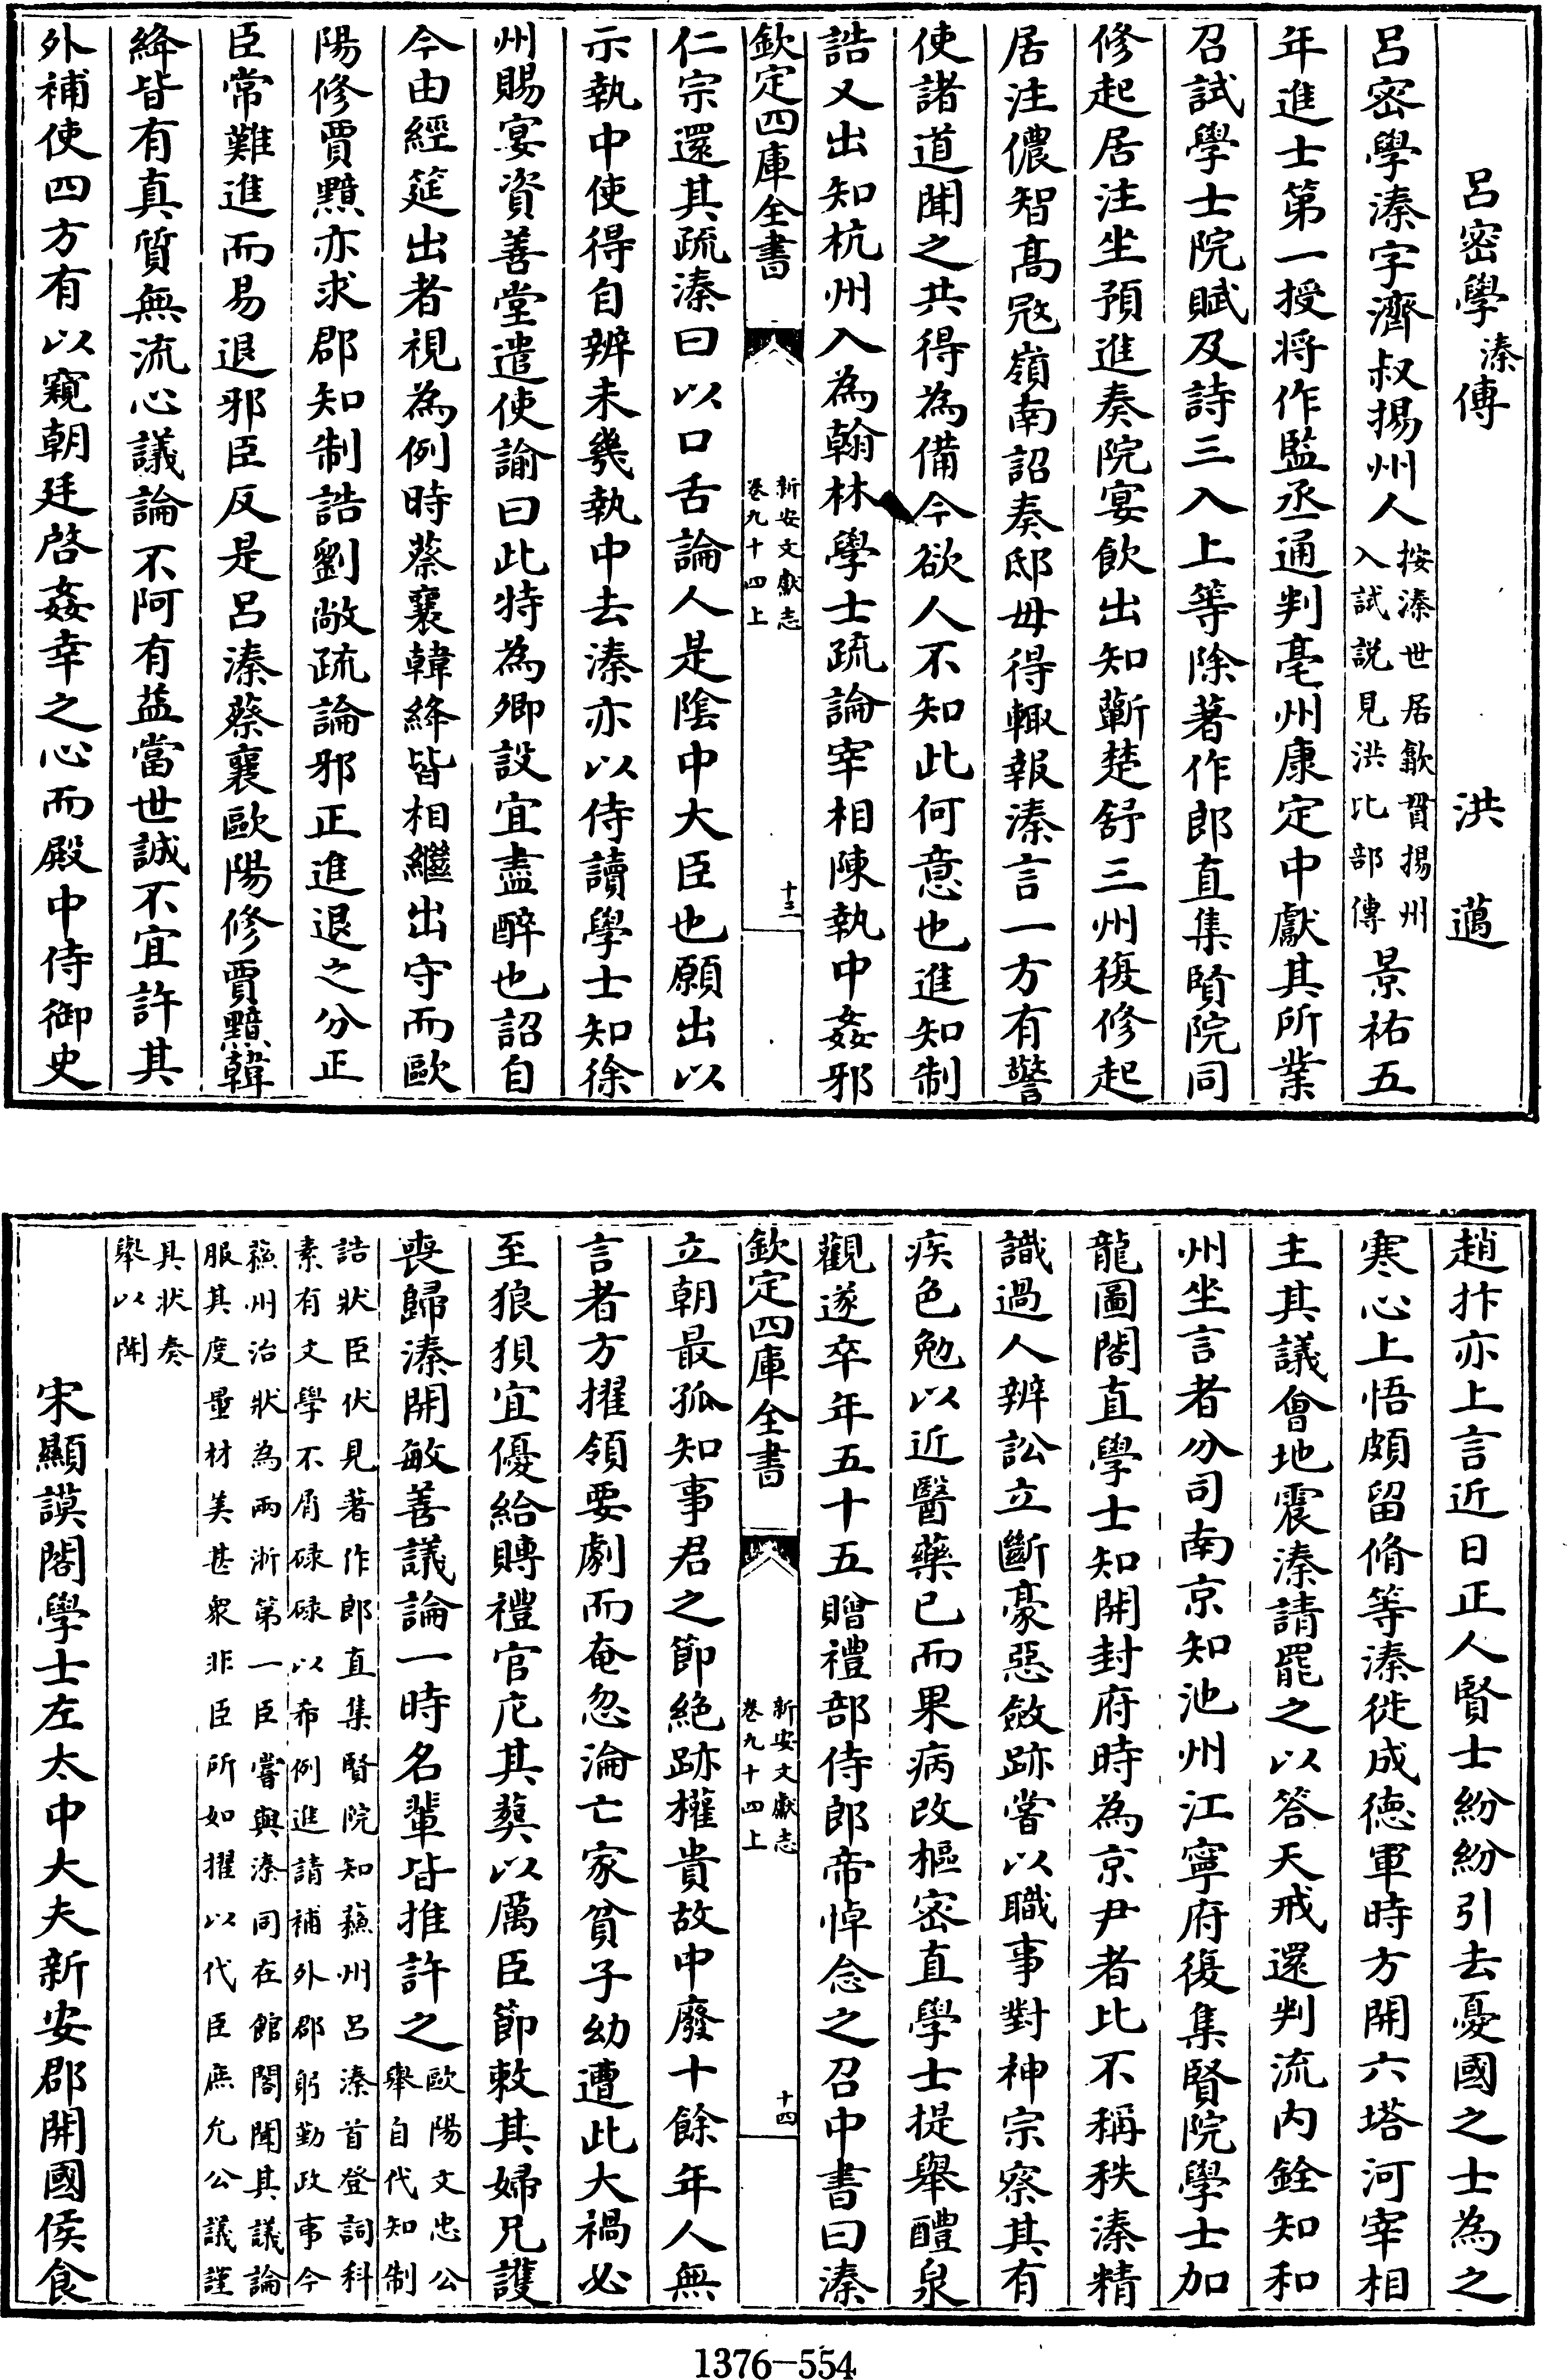 呂密學溱傳　洪邁
呂密學溱字濟叔揚州人按溱世居歙貫揚州入試説見洪比部傳景祐五
年進士第一授将作監丞通判亳州康定中獻其所業
召試學士院賦及詩三入上等除著作郎直集賢院同
修起居注坐預進奏院宴飲出知蘄楚舒三州復修起
居注儂智髙宼嶺南詔奏邸毋得輙報溱言一方有警
使諸道聞之共得為備今欲人不知此何意也進知制
誥又出知杭州入為翰林學士疏論宰相陳執中姦邪
欽定四庫全書　新安文獻志卷九十四上　十三
仁宗還其疏溱曰以口舌論人是陰中大臣也願出以
示執中使得自辨未幾執中去溱亦以侍讀學士知徐
州賜宴資善堂遣使諭曰此特為卿設宜盡醉也詔自
今由經筵出者視為例時蔡襄韓絳皆相繼出守而歐
陽修賈黯亦求郡知制誥劉敞疏論邪正進退之分正
臣常難進而易退邪臣反是呂溱蔡襄歐陽修賈黯韓
絳皆有真質無流心議論不阿有益當世誠不宜許其
外補使四方有以窺朝廷啓姦幸之心而殿中侍御史
趙抃亦上言近日正人賢士紛紛引去憂國之士為之
寒心上悟頗留脩等溱徙成徳軍時方開六塔河宰相
主其議會地震溱請罷之以答天戒還判流内銓知和
州坐言者分司南京知池州江寧府復集賢院學士加
龍圖閣直學士知開封府時為京尹者比不稱秩溱精
識過人辨訟立斷豪惡斂跡嘗以職事對神宗察其有
疾色勉以近醫藥已而果病改樞密直學士提舉醴泉
觀遂卒年五十五贈禮部侍郎帝悼念之召中書曰溱
欽定四庫全書　新安文獻志卷九十四上　十四
立朝最孤知事君之節絶跡權貴故中廢十餘年人無
言者方擢領要劇而奄忽淪亡家貧子幼遭此大禍必
至狼狽宜優給賻禮官庀其葬以厲臣節敕其婦兄護
喪歸溱開敏善議論一時名輩皆推許之歐陽文忠公舉自代知制
誥狀臣伏見著作郎直集賢院知蘓州呂溱首登詞科
素有文學不屑碌碌以希例進請補外郡躬勤政事今
蘓州治狀為兩浙第一臣嘗與溱同在館閣聞其議論
服其度量材美甚衆非臣所如擢以代臣庶允公議謹
具状奏
舉以聞
宋顯謨閣學士左太中大夫新安郡開國侯食
1376—554